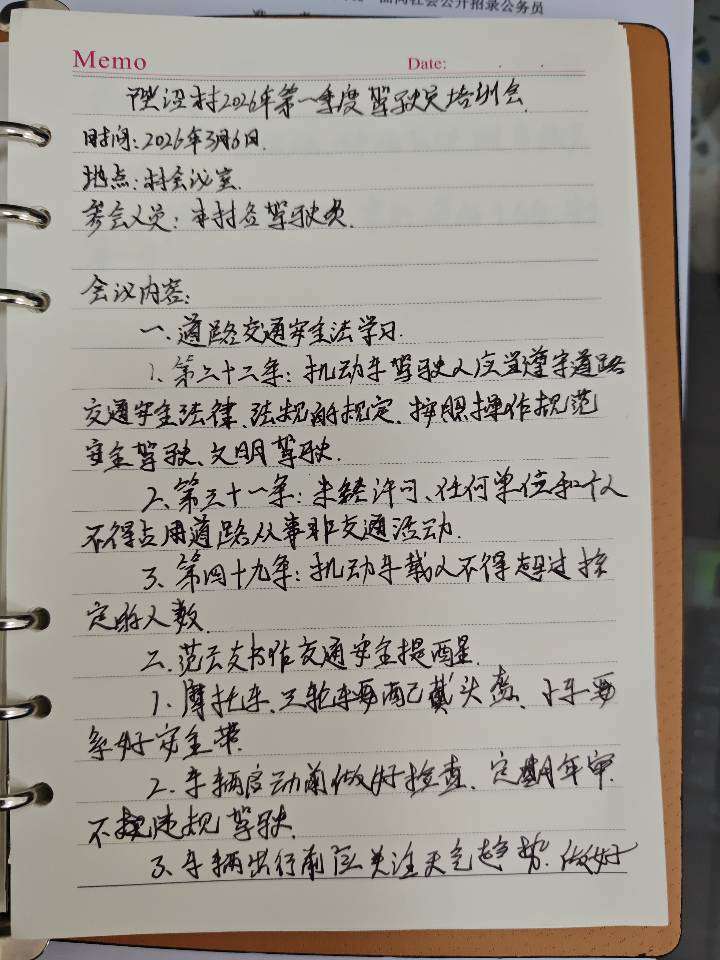 面向社会公开招录公务员
Memo
Date: . .
村2026年第一季度驾驶员培训会
时间:2026年3月6日.
地点:村会议室.
参会人员:本村各驾驶员.
会议内容:
一、道路交通安全法学习.
1、第二十二条:机动车驾驶人应当遵守道路
交通安全法律、法规的规定、按照操作规范
安全驾驶、文明驾驶.
2、第三十一条:未经许可、任何单位和个人
不得占用道路从事非交通活动.
3、第四十九条:机动车载人不得超过核
定的人数.
二、范云支书作交通安全提醒.
1、摩托车、三轮车要配戴头盔、小车要
系好安全带.
2、车辆启动前做好检查、定期年审.
不违规驾驶.
3、车辆出行前应关注天气趋势、做好